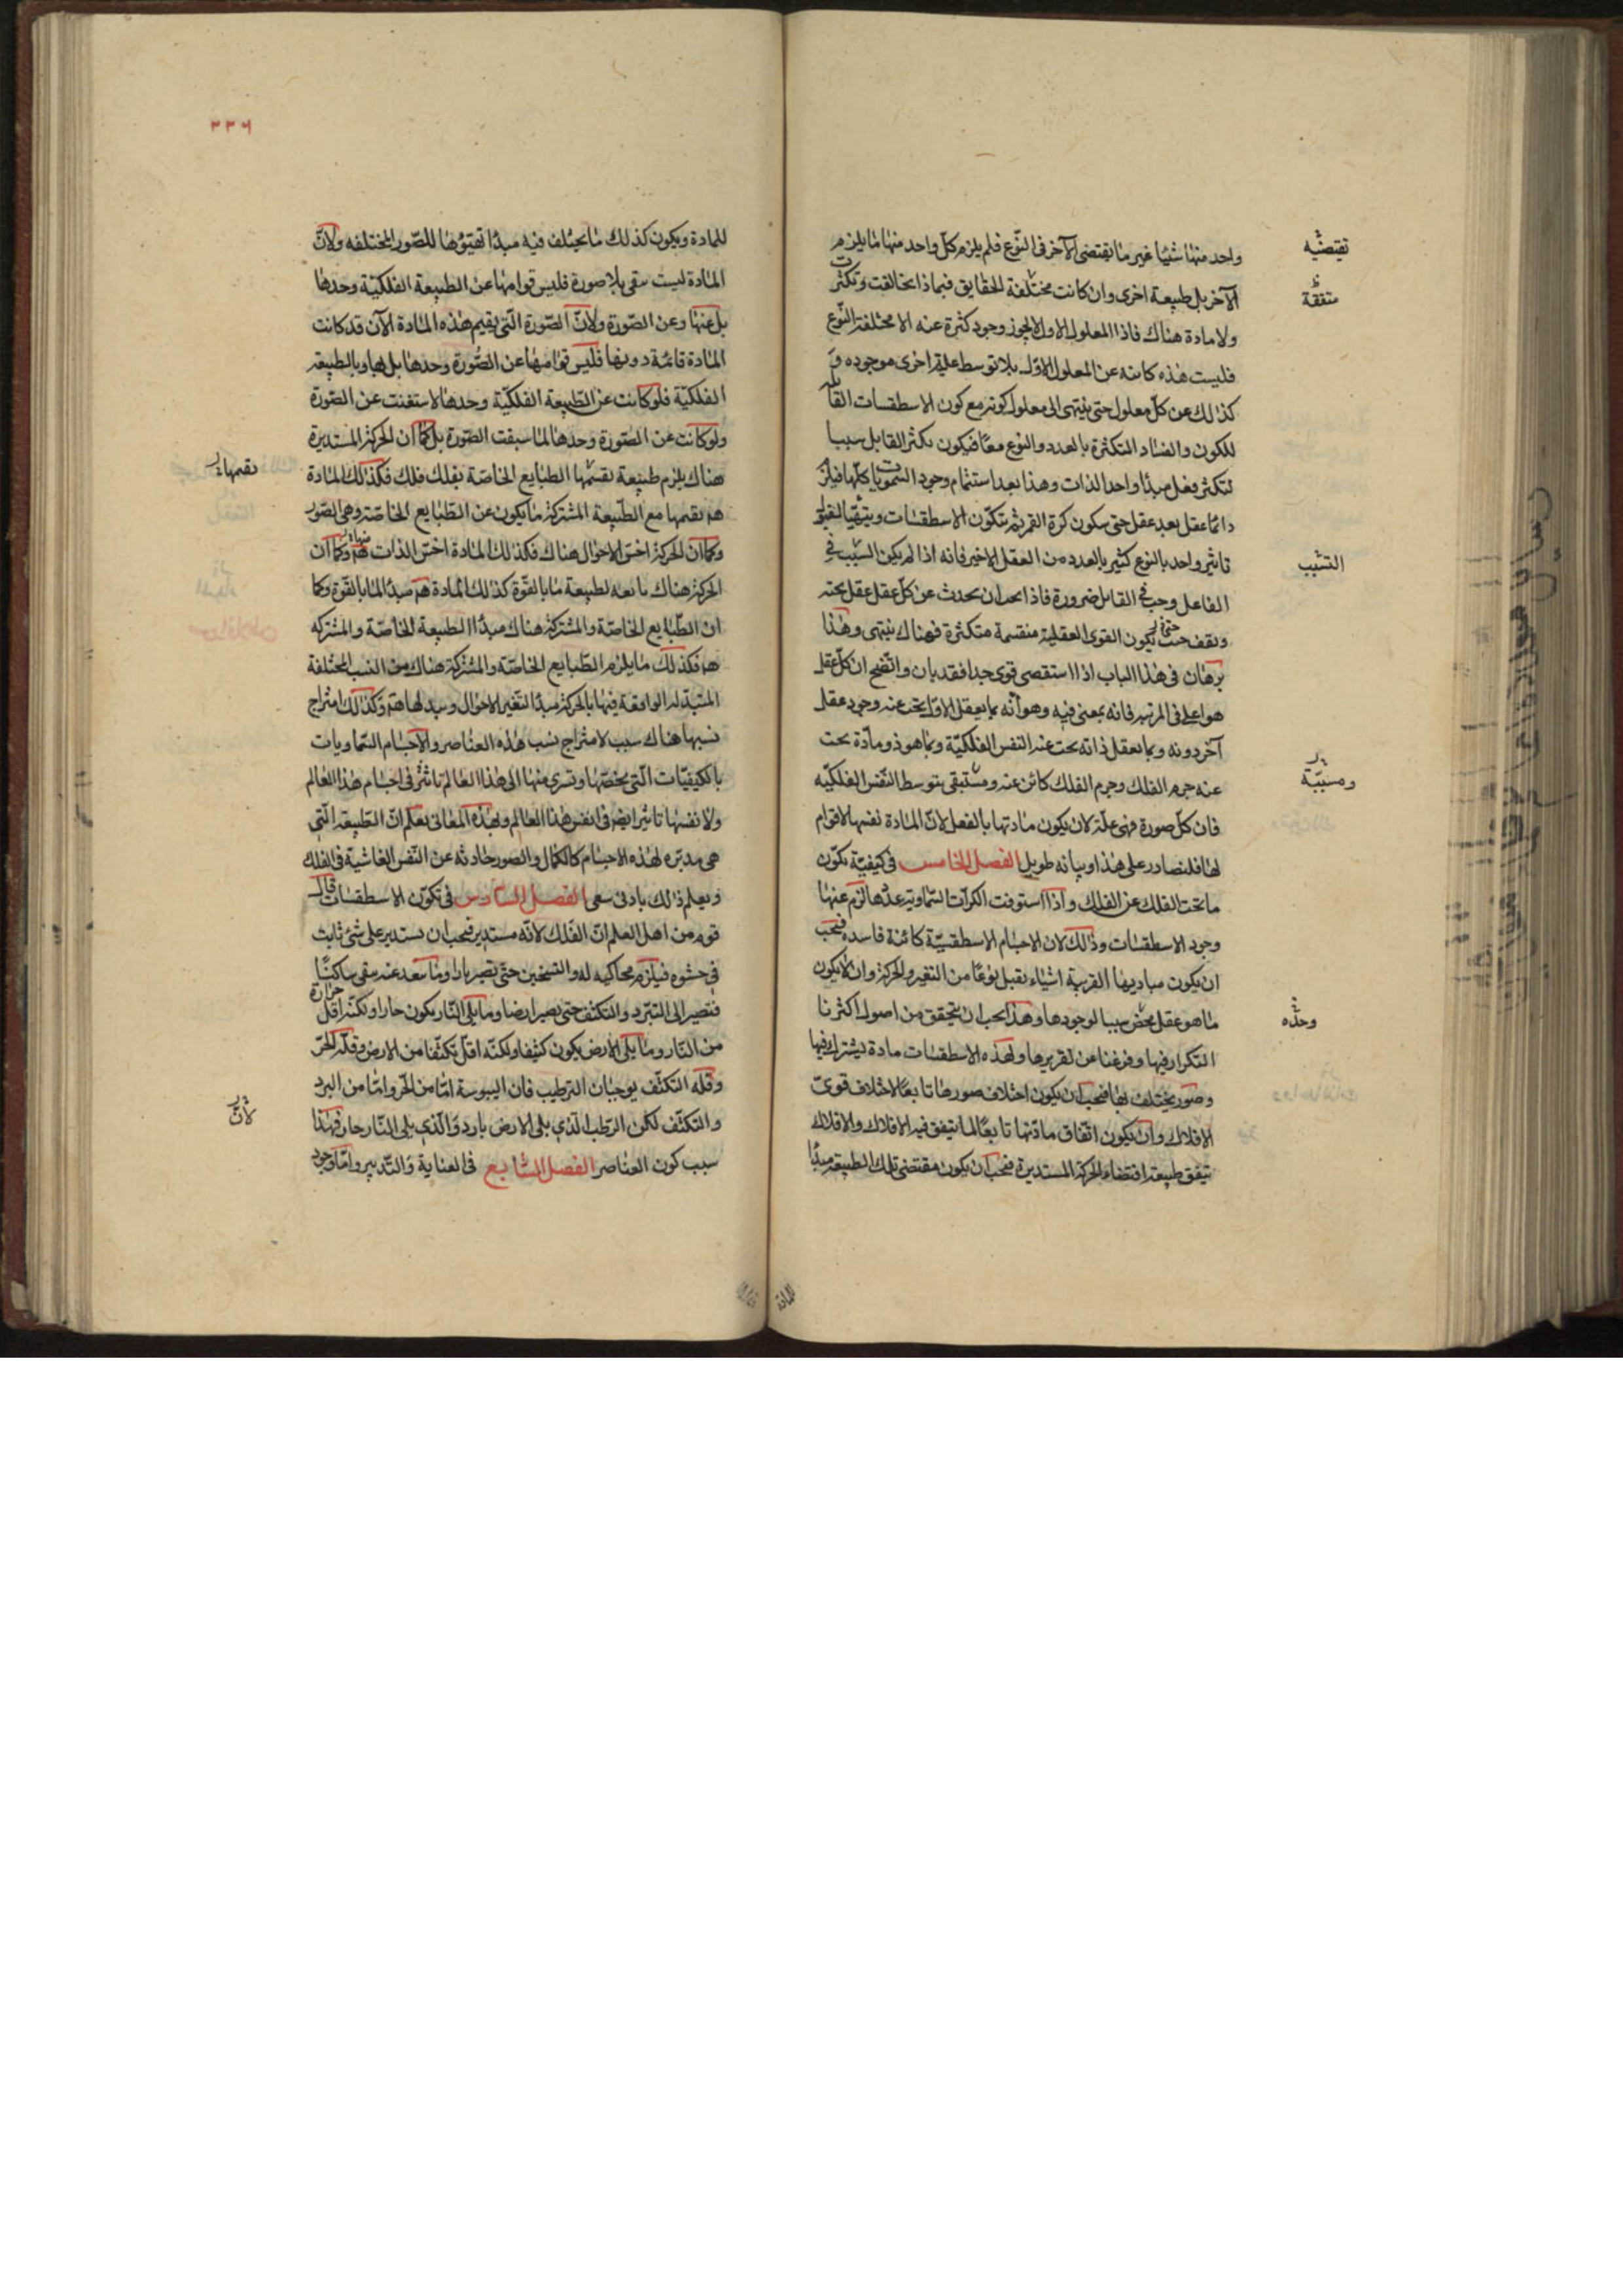 واحد منها شيئا غير ما يقتضى الآخر فى النوع فلم يلزم كل واحد منها ما يلزم
الآخر بل طبيعة اخرى وان كانت مختلفة الحقايق فبماذا تخالفت وتكثرت
ولا مادة هناك فاذا المعلول الاول لا يجوز وجود كثرة عنه الا مختلفة النوع
فليست هذه كاينه عن المعلول الاول بلا توسط علية اخرى موجوده و
كذلك عن كل معلول حتى ينتهى الى معلول كونه مع كون الاسطقسات القابلة
للكون والفساد المتكثرة بالعدد والنوع معا فيكون تكثر القابل سببا
لتكثر فعل مبدأ واحد الذات وهذا بعد استتمام وجود السمويات كلها فيلزم
دائما عقل بعد عقل حتى يتكون كرة القمر ثم تتكون الاسطقسات ويتهيا لقبول
تاثير واحد بالنوع كثير بالعدد من العقل الاخير فانه اذا لم يكن السبب فى
الفاعل وجب فى القابل ضرورة فاذا يجب ان يحدث عن كل عقل عقل تحته
ويقف حيث يكون القوى العقلية منقسمة متكثرة فهناك ينتهى وهذا
برهان فى هذا الباب اذا استقصى قوى جدا فقد بان واتضح ان كل عقل
هو اعلى فى المرتبه فانه بمعنى فيه وهو أنه بما يعقل الاول يجب عنه وجود عقل
آخر دونه وبما يعقل ذاته يجب عنه النفس الفلكية وبما هو ذو مادة يجب
عنه جرم الفلك وجرم الفلك كائن عنه ومستبقى بتوسط النفس الفلكيه
فان كل صورة فهى علة لان يكون مادتها بالفعل لان المادة نفسها لا قوام
لها فلنصادر على هذا وبيانه طويل الفصل الخامس فى كيفية تكون
ما تحت الفلك عن الفلك واذا استوفت الكرات السماوية عددها لزم عنها
وجود الاسطقسات وذلك لان الاجسام الاسطقسية كائنة فاسده فيجب
ان يكون مباديها القريبة اشياء يقبل نوعا من التغير والحركة وان لا يكون
ما هو عقل محض سببا لوجودها وهذا يجب ان يتحقق من اصول اكثرنا
التكرار فيها وفرغنا عن تقريرها ولهذه الاسطقسات مادة يشترك فيها
وصور يختلف بها فيجب ان يكون اختلاف صورها تابعا لاختلاف قوى
الافلاك وان يكون اتفاق مادتها تابعا لما يتفق فيه الافلاك والافلاك
تتفق طبيعة اقتضاء الحركة المستديرة فيجب ان يكون مقتضى تلك الطبيعة مبدأ
للمادة
تقتضيه
متفقة
التسبب
ومسببة
وحده
٣٣٦
للمادة ويكون كذلك ما يختلف فيه مبدأ تهيؤها للصور المختلفه ولان
المادة ليست تبقى بلا صورة فليس قوامها عن الطبيعة الفلكية وحدها
بل عنها وعن الصورة ولان الصورة التى يقيم هذه المادة الآن قد كانت
المادة قائمة دونها فليس قوامها عن الصورة وحدها بل بها وبالطبيعة
الفلكية فلو كانت عن الطبيعة الفلكية وحدها لاستغنت عن الصورة
ولو كانت عن الصورة وحدها لما سبقت الصورة بل كما ان الحركة المستديرة
هناك يلزم طبيعة تقيمها الطبايع الخاصة بفلك فلك فكذلك المادة
ههنا يقيمها مع الطبيعة المشتركة ما يكون عن الطبايع الخاصة وهى الصور
وكما ان الحركة اخس الاحوال هناك فكذلك المادة اخس الذات ههنا وكما ان
الحركة هناك تابعه لطبيعة ما بالقوة كذلك المادة ههنا مبدأ لما بالقوة وكما
ان الطبايع الخاصة والمشتركة هناك مبدأ الطبيعة الخاصة والمشتركه
ههنا فكذلك ما يلزم الطبايع الخاصة والمشتركة هناك من النسب المختلفة
المتبدله الواقعة فيها بالحركة مبدأ لتغير الاحوال وتبدلها ههنا وكذلك امتزاج
نسبها هناك سبب لامتزاج نسب هذه العناصر والاجسام السماويات
بالكيفيات التى يخصها وتسرى منها الى هذا العالم تاثير فى اجسام هذا العالم
ولانفسها تاثير ايضا فى انفس هذا العالم وبهذه المعانى يعلم ان الطبيعة التى
هى مدبره لهذه الاجسام كالكمال والصور حادثه عن النفس الفاشية فى الفلك
ويعلم ذلك بادنى سعى الفصل السادس فى تكون الاسطقسات قال
قوم من اهل العلم ان الفلك لانه مستدير فيجب ان يستدير على شئ ثابت
فى حشوه فيلزم محاكيه له والتسخين حتى يصير نارا وما يبعد عنه يبقى ساكنا
فتصير الى التبرد والتكثف حتى يصير ارضا وما يلى النار يكون حارا ولكنه اقل حرارة
من النار وما يلى الارض يكون كثيفا ولكنه اقل تكثفا من الارض وقلة الحر
وقله التكثف يوجبان الترطيب فان اليبوسة اما من الحر واما من البرد
والتكثف لكن الرطب الذى يلى الارض بارد والذى يلى النار حار فهذا
سبب كون العناصر الفصل السابع فى العناية والتدبير واما وجود
تقيمها
لان